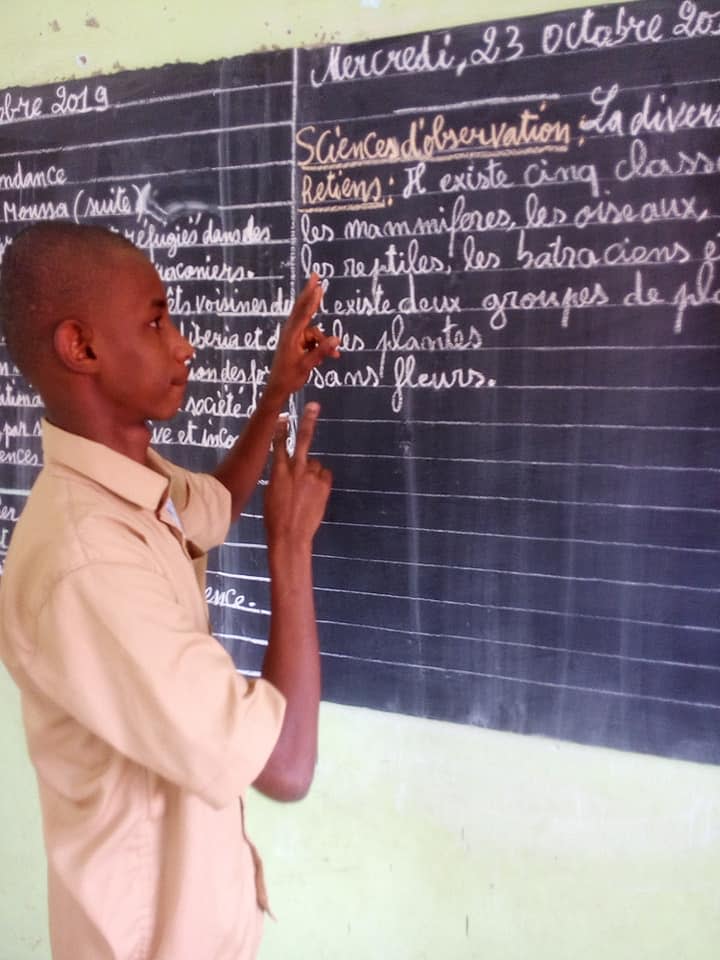 obre 2019
ndance
Moussa (suite)
réfugiés dans des
aconiers.
êts voisines du
iberia et d
ion des for
société d
par s ve et inco
ences
ence.
Mercredi, 23 octobre 20
Sciences d'observation : La divers
Retiens : Il existe cinq class
les mammifères, les oiseaux,
les reptiles, les batraciens e
Il existe deux groupes de pla
les plantes
sans fleurs.